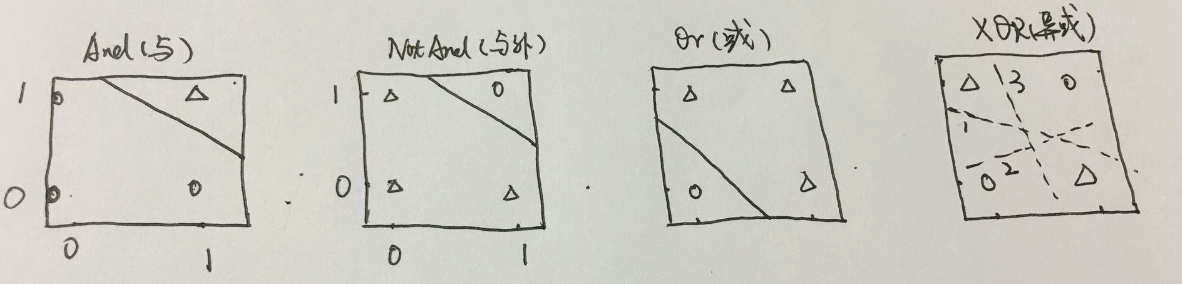 And (与)
1
0
0 1
Not And (与非)
1
0
0 1
Or (或)
XOR (异或)
3
1
2